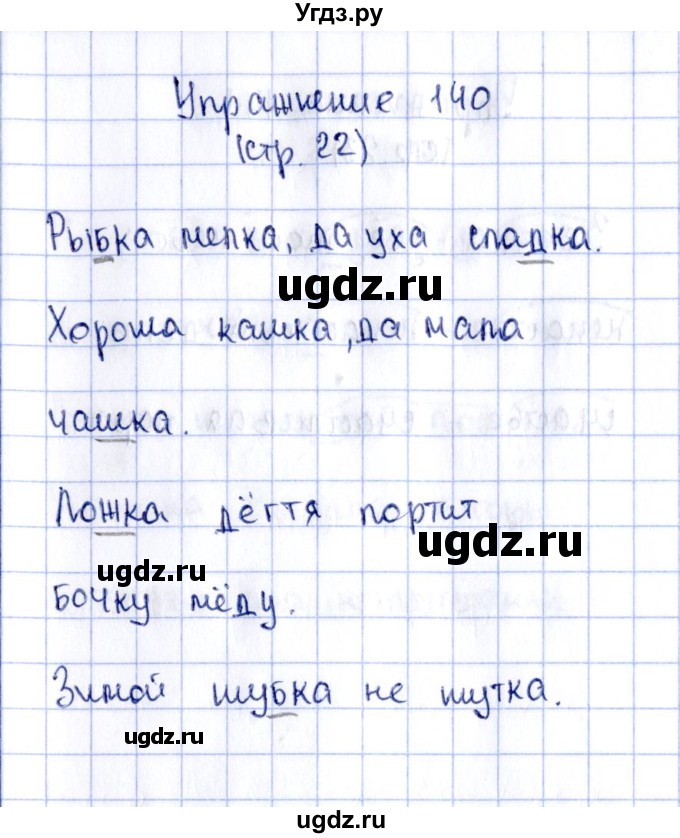 Угдз.ру
Упражнение 140
(стр. 22)
Рыбка мелка, да уха сладка.
ugdz.ru
Хороша кашка, да мала
чашка.
Ложка дёгтя портит
ugdz.ru
ugdz.ru
бочку мёду.
Зимой шубка не шутка.
ugdz.ru
ugdz.ru